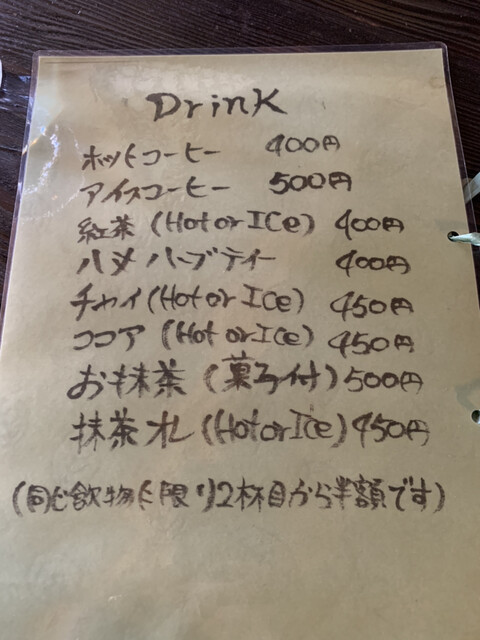 Drink
ホットコーヒー 400円
アイスコーヒー 500円
紅茶 (Hot or ICe) 400円
ハメハーブティー 400円
チャイ (Hot or ICe) 450円
ココア (Hot or ICe) 450円
お抹茶 (菓子付) 500円
抹茶オレ (Hot or ICe) 450円
(同じ飲物に限り2杯目から半額です)